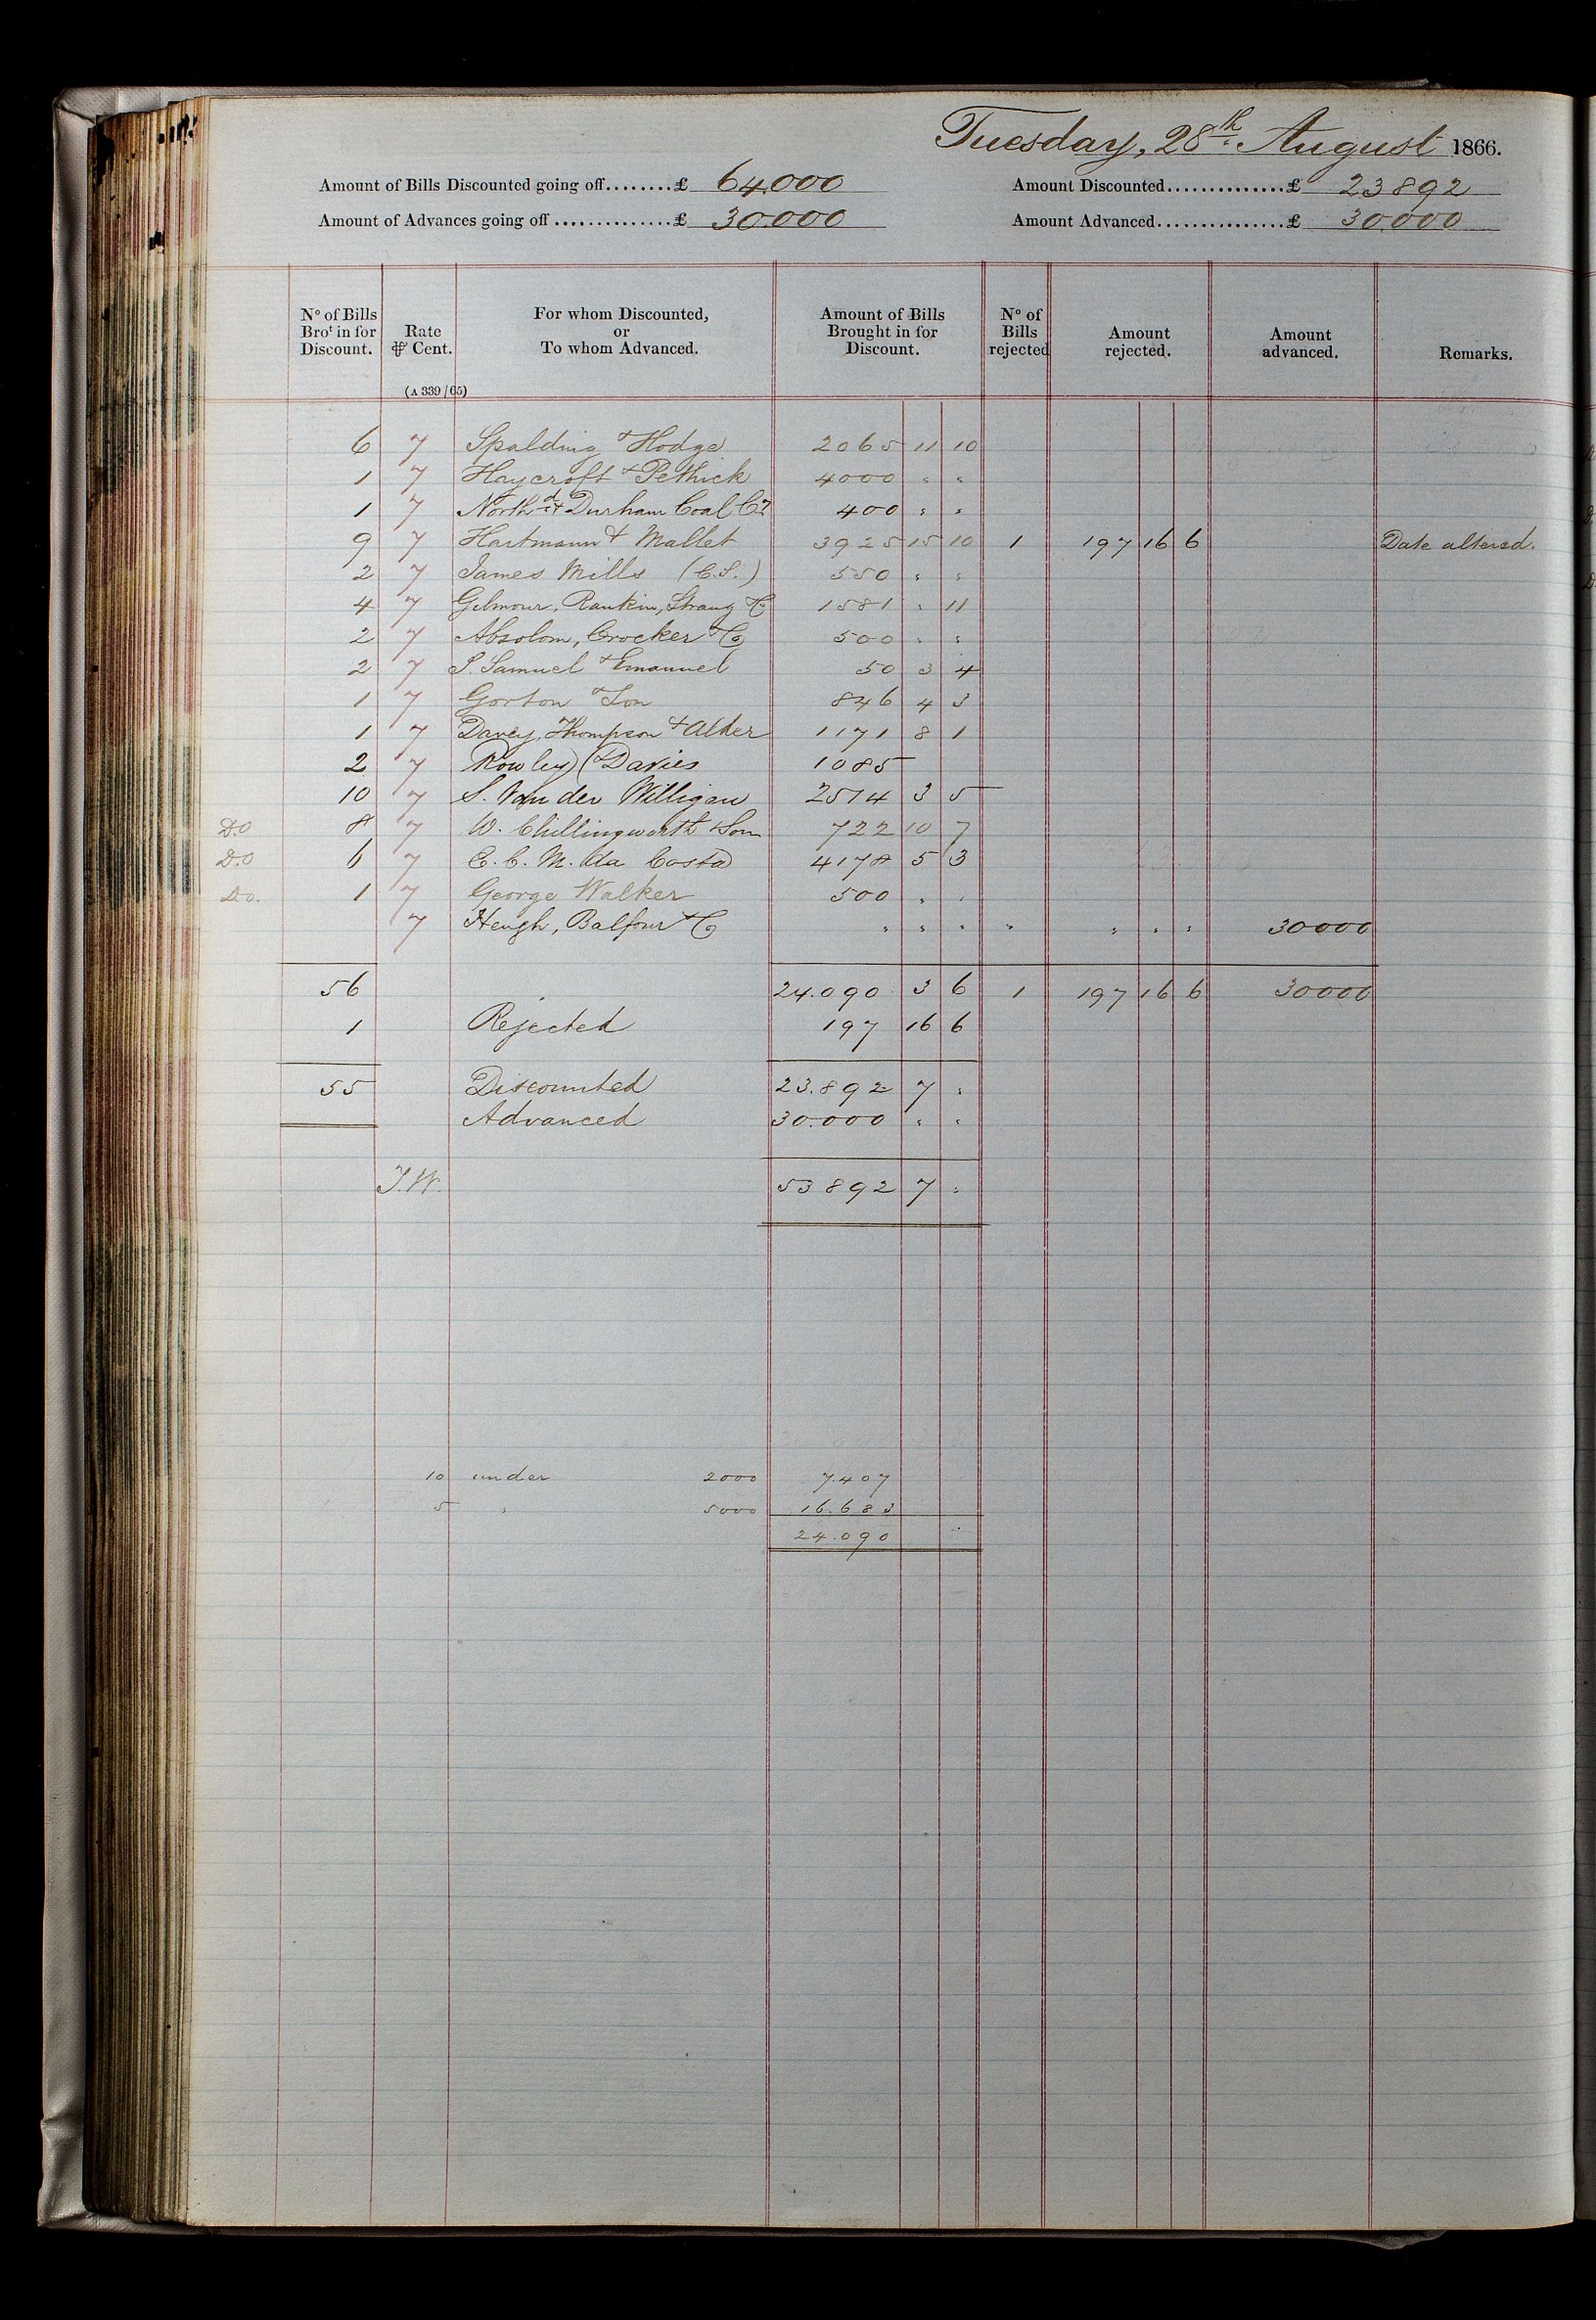 Tuesday, 28th August 1866.
Amount of Bills Discounted going off........£ 64,000 Amount Discounted..............£ 23892
Amount of Advances going off ..............£ 30.000 Amount Advanced...............£ 30.000
No of Bills Brot in for Discount. Rate ⅌ Cent. For whom Discounted, or To whom Advanced. Amount of Bills Brought in for Discount. No of Bills rejected Amount rejected. Amount advanced. Remarks.
(A 339/65)
6 7 Spalding & Hodge 2065 11 10
1 7 Haycroft & Pethick 4000 " "
1 7 North'd & Durham Coal Co 400 " "
9 7 Hartmann & Mallet 3925 15 10 1 197 16 6 Date altered.
2 7 James Mills (C.S.) 550 " "
4 7 Gilmour, Rankin, Strang & Co 1581 " 11
2 7 Absolom, Crocker & Co 500 " "
2 7 S. Samuel & Emanuel 50 3 4
1 7 Gorton & Son 846 4 3
1 7 Davey, Thompson & Alder 1171 8 1
2 7 Rowley) (Davies 1085
10 7 S. Van der Willigan 2514 3 5
D.O 8 7 W. Chillingworth & Son 722 10 7
D.O 6 7 E. C. M. da Costa 4178 5 3
D.O. 1 7 George Walker 500 " "
7 Heugh, Balfour & Co " " " " " " " 30000
56 24.090 3 6 1 197 16 6 30000
1 Rejected 197 16 6
55 Discounted 23.892 7 "
Advanced 30.000 " "
J.W. 53892 7 "
10 under 2000 7.407
5 " 5000 16.683
24.090